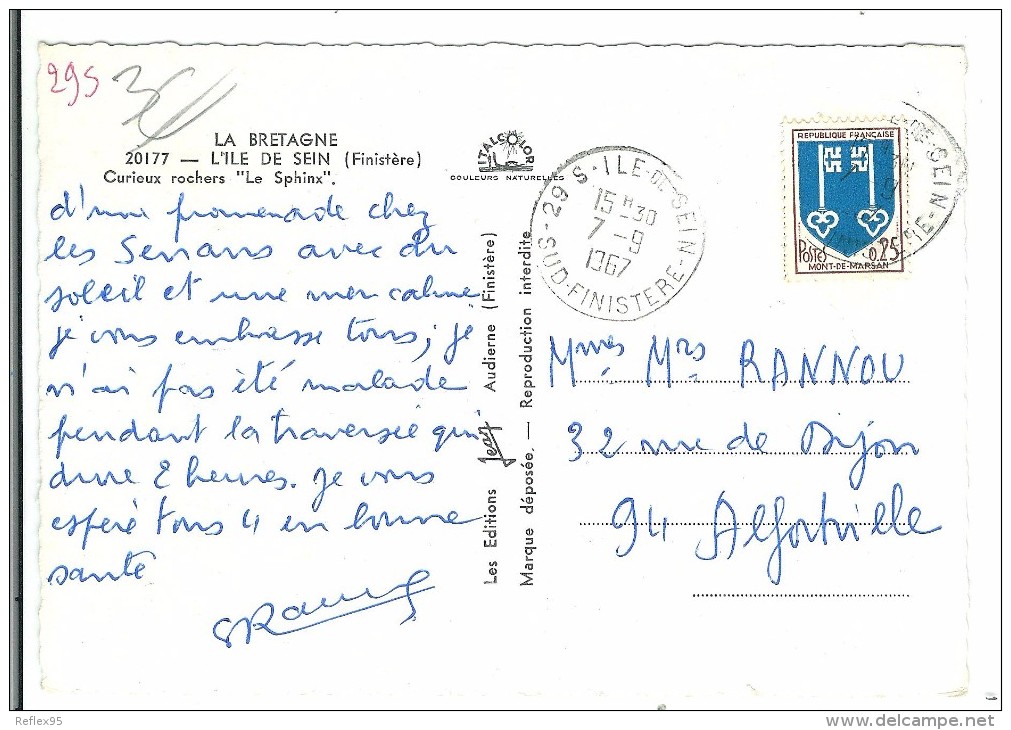 29S
LA BRETAGNE
20177 — L'ILE DE SEIN (Finistère)
Curieux rochers "Le Sphinx".
ITALCOLOR
COULEURS NATURELLES
d'une promenade chez
les Senans avec du
soleil et une mer calme
je vous embrasse tous; je
n'ai pas été malade
pendant la traversée qui
dure 2 heures. Je vous
espère tous 4 en bonne
santé
Les Editions Jean Audierne (Finistère)
Marque déposée. — Reproduction interdite
29 S-ILE-DE-SEIN
15 H-30
7-9
1967
SUD-FINISTERE-N
REPUBLIQUE FRANÇAISE
POSTES 0,25
MONT-DE-MARSAN
Mmes Mrs RANNOU
32 rue de Dijon
94 Alfortville
Reflex95
www.delcampe.net